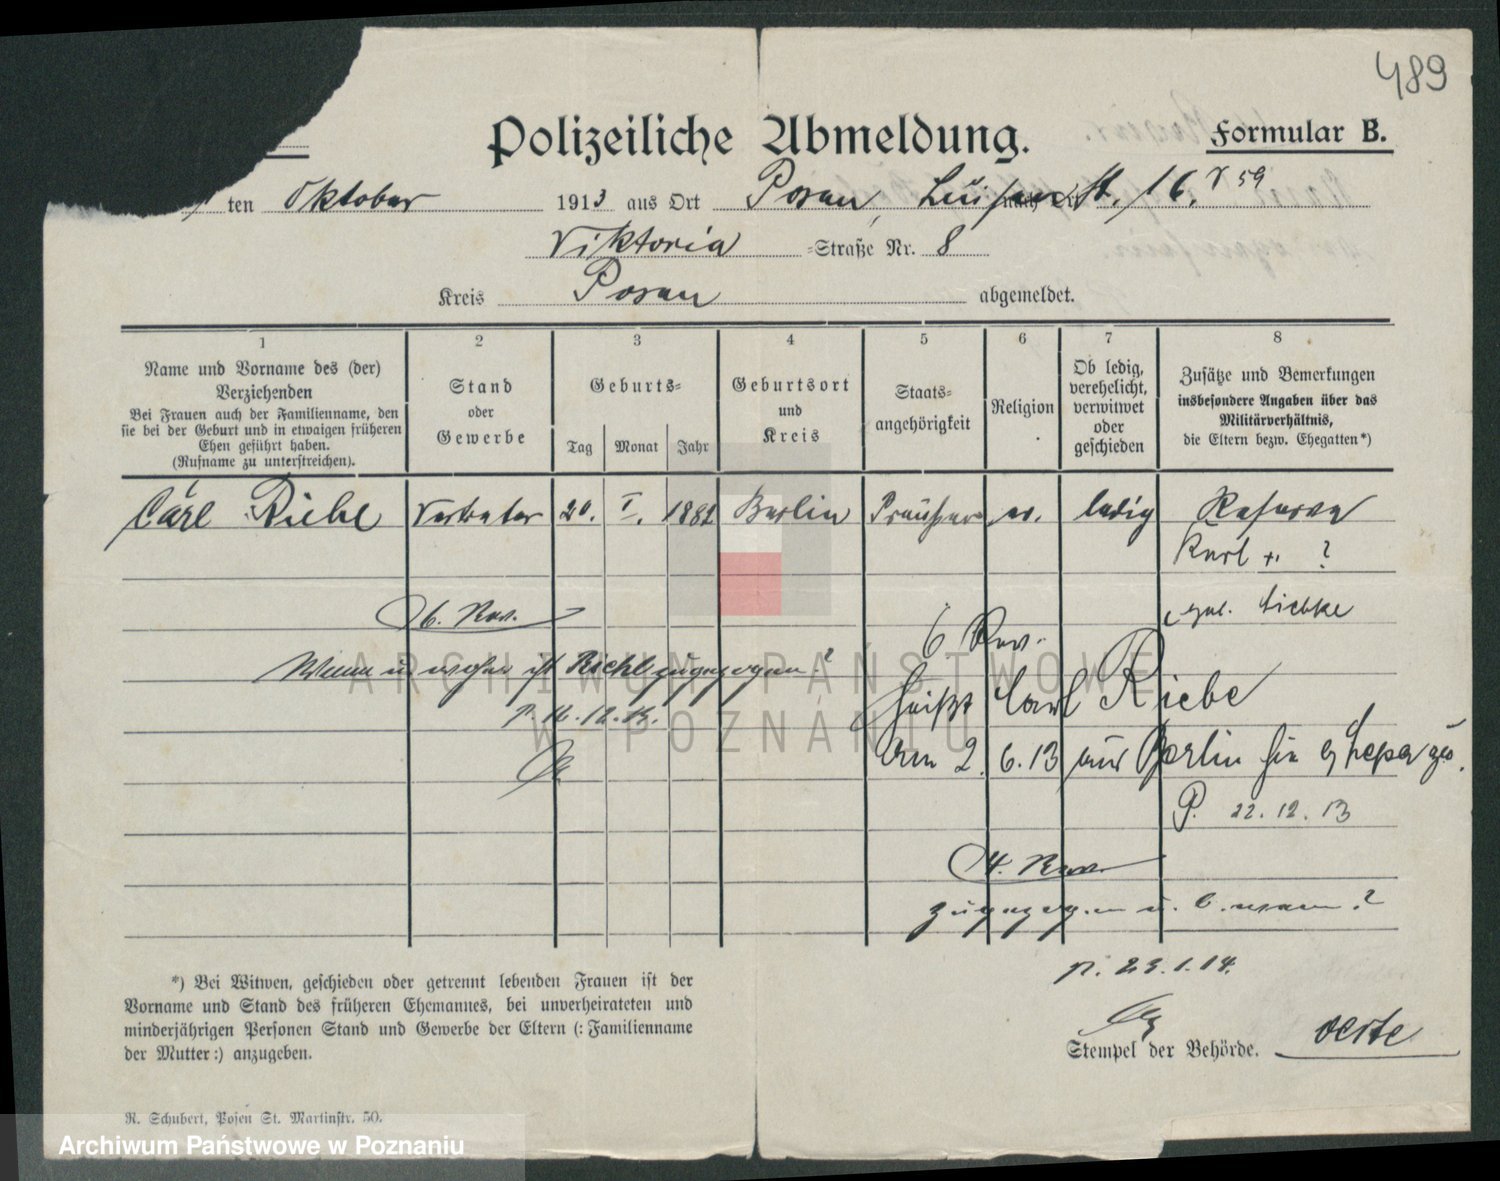 489
Polizeiliche Abmeldung.
Formular B.
ten Oktober 1913 aus Ort Posen, Luisenst. 16. V 59
Viktoria =Straße Nr. 8
Kreis Posen abgemeldet.
1 2 3 4 5 6 7 8
Name und Vorname des (der) Verziehenden
Bei Frauen auch der Familienname, den
sie bei der Geburt und in etwaigen früheren
Ehen geführt haben.
(Rufname zu unterstreichen).
Stand
oder
Gewerbe
Geburts=
Tag Monat Jahr
Geburtsort
und
Kreis
Staats=
angehörigkeit
Religion
Ob ledig,
verehelicht,
verwitwet
oder
geschieden
Zusätze und Bemerkungen
insbesondere Angaben über das
Militärverhältnis,
die Eltern bezw. Ehegatten*)
Carl Riebe Vertreter 20. I. 1882 Berlin Preußen ev. ledig Reserve
Karl ?
geb. Liebke
6. Rev.
6 Rev.
Wenn u woher ist Riehl zugezogen?
heißt Carl Riebe
P. 16.12.13.
Am 2. 6. 13 aus Berlin hier
P. 22. 12. 13
4. Rev.
zugezogen u. ?
P. 23.1.14.
*) Bei Witwen, geschieden oder getrennt lebenden Frauen ist der
Vorname und Stand des früheren Ehemannes, bei unverheirateten und
minderjährigen Personen Stand und Gewerbe der Eltern (: Familienname
der Mutter:) anzugeben.
Stempel der Behörde.
Oerte
R. Schubert, Posen St. Martinstr. 50.
ARCHIWUM PAŃSTWOWE
W POZNANIU
Archiwum Państwowe w Poznaniu